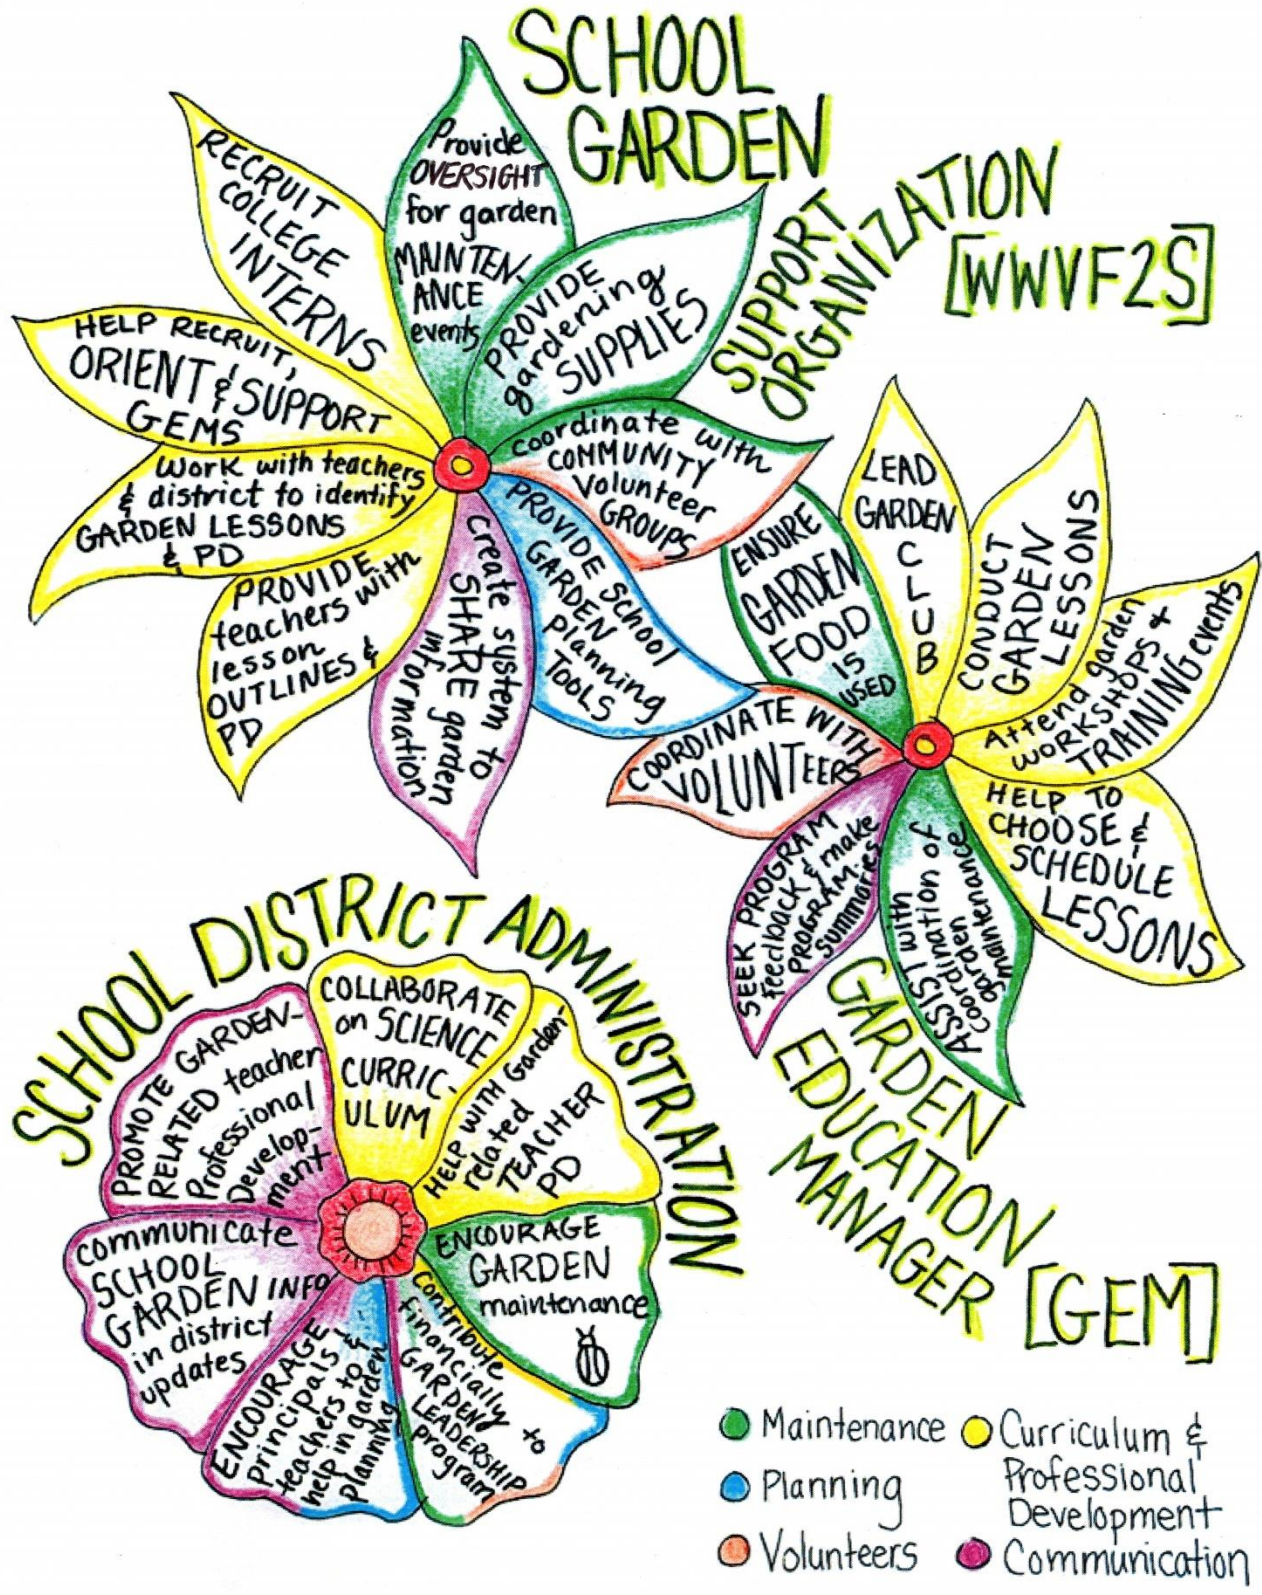 SCHOOL
GARDEN
SUPPORT
ORGANIZATION
[WWVF2S]
Provide
OVERSIGHT
for garden
MAINTEN-
ANCE
events
PROVIDE
gardening
SUPPLIES
coordinate with
COMMUNITY
Volunteer
GROUPS
PROVIDE School
GARDEN
planning
TOOLS
create system to
SHARE garden
information
PROVIDE
teachers with
lesson
OUTLINES &
PD
Work with teachers
& district to identify
GARDEN LESSONS
& PD
HELP RECRUIT,
ORIENT & SUPPORT
GEMS
RECRUIT
COLLEGE
INTERNS
LEAD
GARDEN
C
L
U
B
CONDUCT
GARDEN
LESSONS
Attend garden
WORKSHOPS +
TRAINING events
HELP TO
CHOOSE &
SCHEDULE
LESSONS
ASSIST with
coordination of
garden
maintenance
SEEK PROGRAM
feedback & make
PROGRAM
Summaries
COORDINATE WITH
VOLUNTEERS
ENSURE
GARDEN
FOOD
IS
USED
GARDEN
EDUCATION
MANAGER
[GEM]
SCHOOL DISTRICT ADMINISTRATION
COLLABORATE
on SCIENCE
CURRIC-
ULUM
HELP WITH Garden-
related
TEACHER
PD
ENCOURAGE
GARDEN
maintenance
Contribute
financially to
GARDEN
LEADERSHIP
program
ENCOURAGE
principals &
teachers to
help in garden
planning
communicate
SCHOOL
GARDEN INFO
in district
updates
PROMOTE GARDEN-
RELATED teacher
Professional
Develop-
ment
Maintenance
Planning
Volunteers
Curriculum &
Professional
Development
Communication